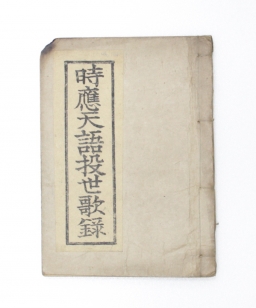 時應天語投世歌錄